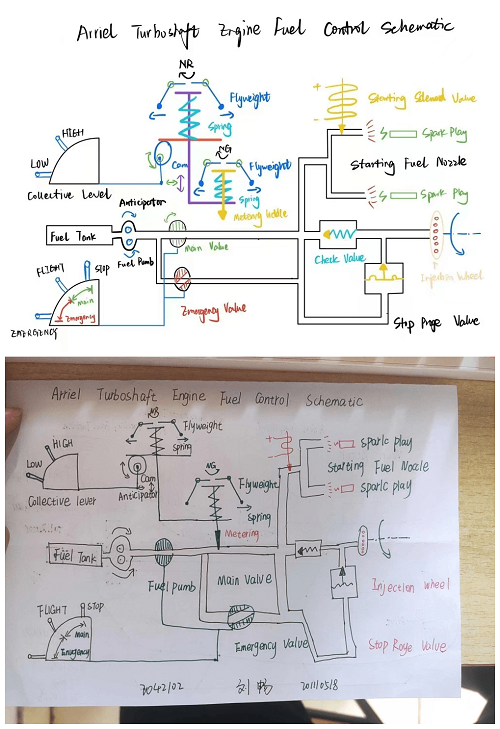 Arriel Turboshaft Engine Fuel Control Schematic
NR
Flyweight
Spring
Starting Solenoid Valve
Spark Play
HIGH
LOW
Collective Level
Cam
NG
Flyweight
Spring
Metering
Starting Fuel Nozzle
Spark Play
Anticipator
Fuel Tank
Fuel Pumb
Main Valve
Check Valve
Injection Wheel
FLIGHT
STOP
Main
Emergency
EMERGENCY
Emergency Valve
Stop Purge Valve
Arriel Turboshaft Engine Fuel Control Schematic
NR
Flyweight
Spring
HIGH
LOW
Collective lever
Cam
Anticipator
NG
Flyweight
Spring
Metering
+
-
sparlc play
Starting Fuel Nozzle
sparlc play
Fuel Tank
Fuel pumb
Main Valve
Injection wheel
FLIGHT
STOP
Main
Emergency
Emergency Valve
Stop Roge Valve
7042102
20110518